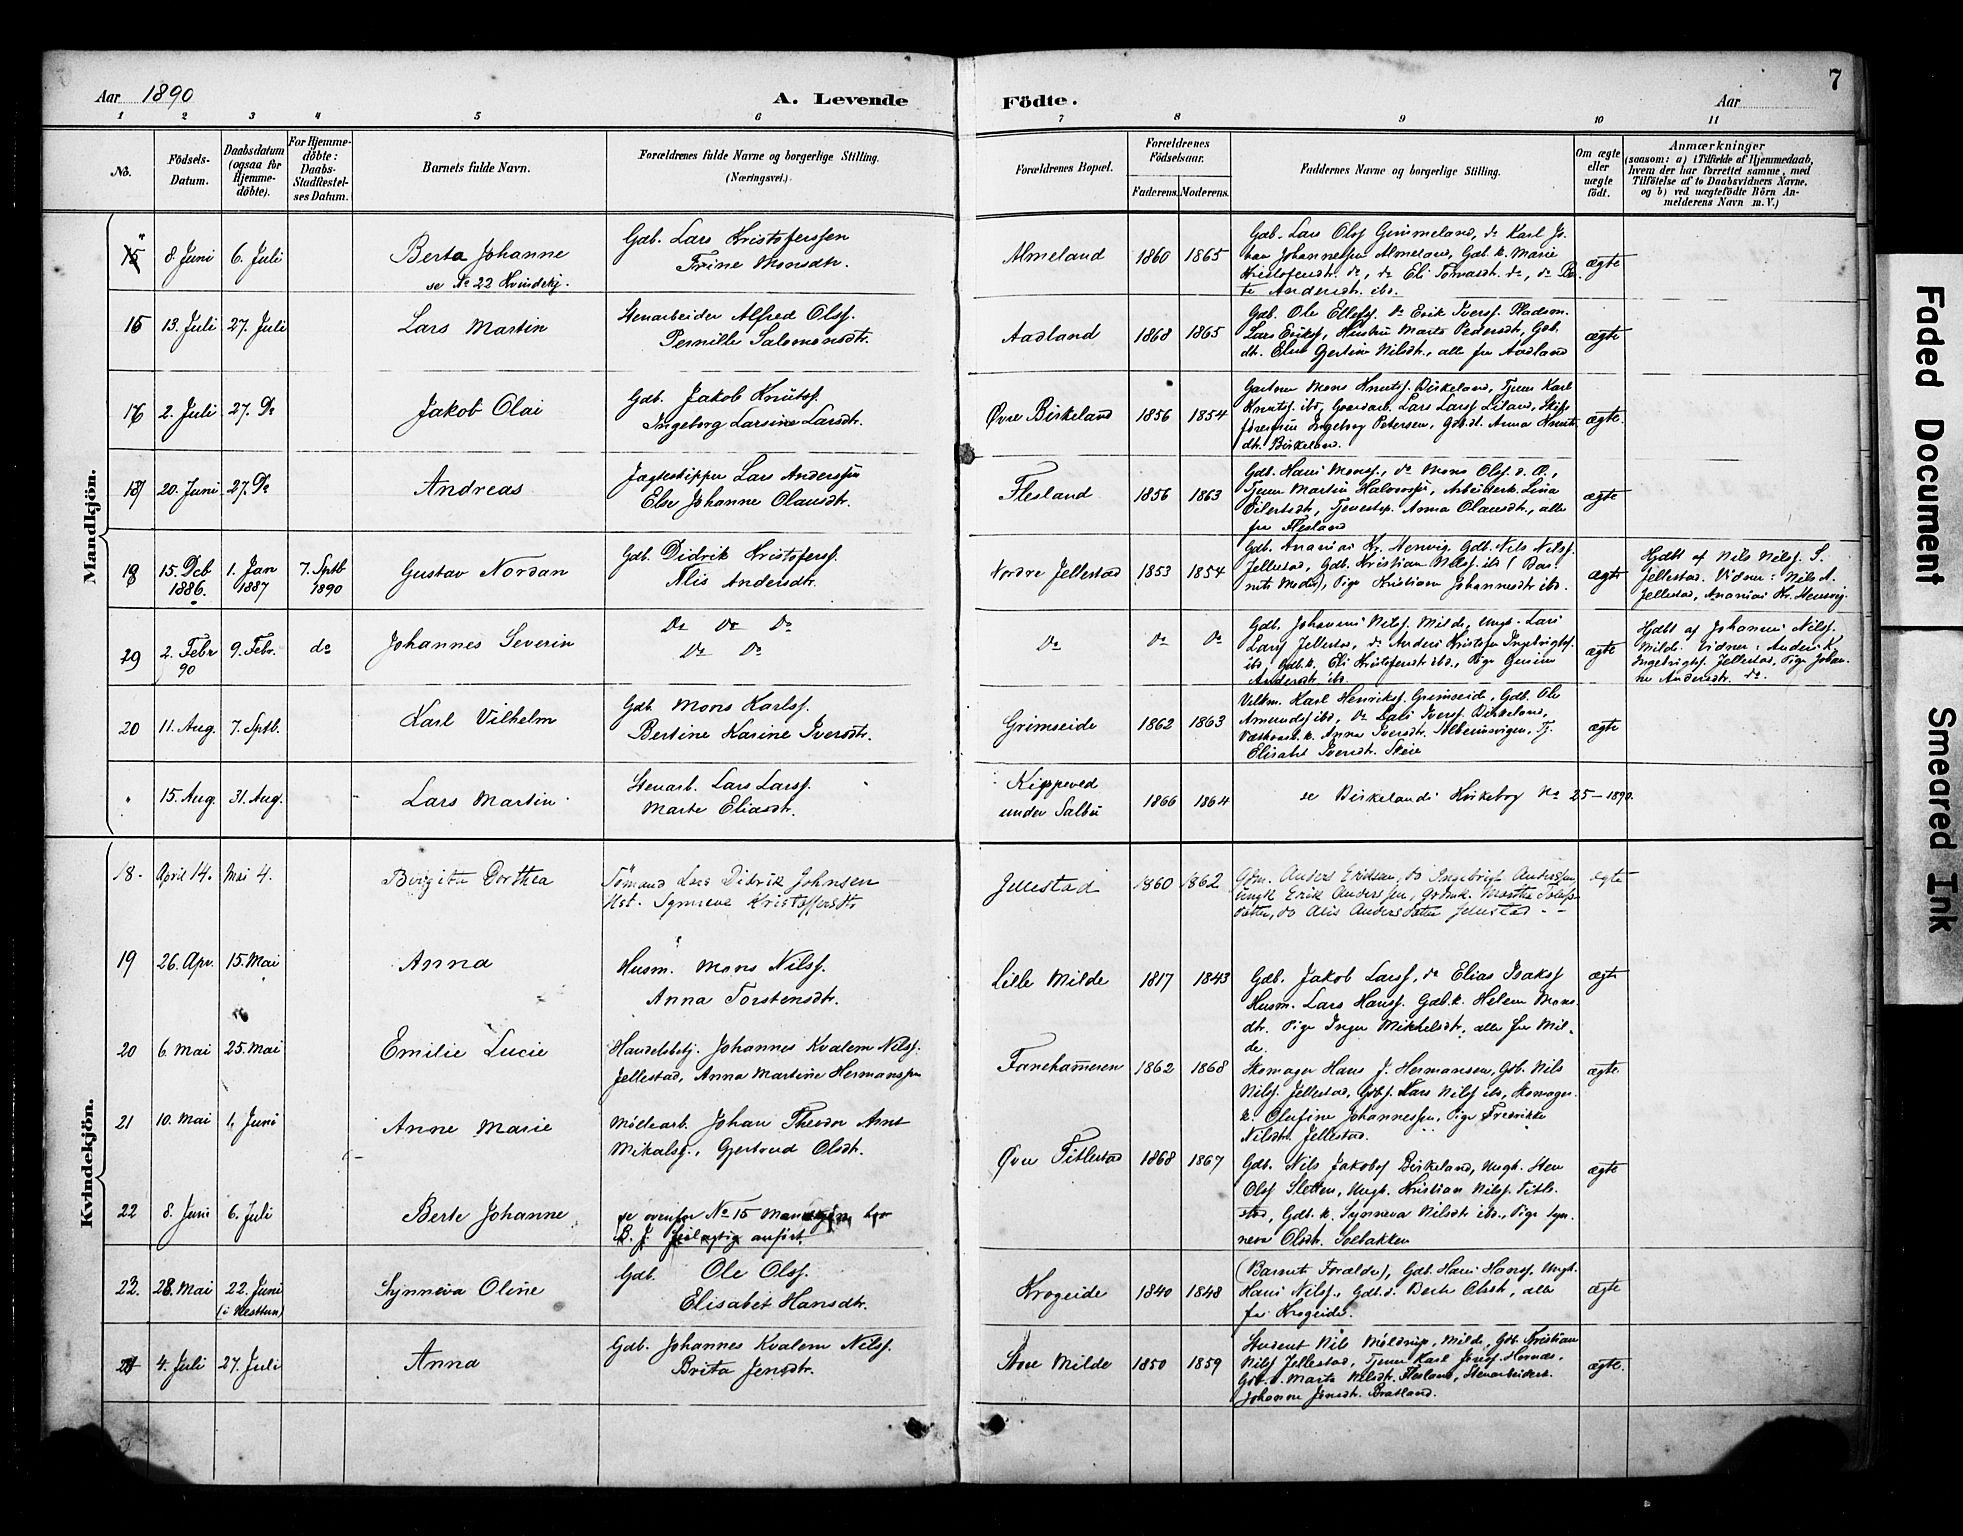 Aar 1890
A. Levende
Födte.
Aar
7
1 2 3 4 5 6 7 8 9 10 11
No.
Födsels-
Datum.
Daabsdatum
(ogsaa for
Hjemme-
döbte).
For Hjemme-
döbte:
Daabs-
Stadfæstel-
ses Datum.
Barnets fulde Navn.
Forældrenes fulde Navne og borgerlige Stilling.
(Næringsvei.)
Forældrenes Bopæl.
Forældrenes
Födselsaar.
Faderens.
Moderens.
Faddernes Navne og borgerlige Stilling.
Om ægte
eller
uægte
født.
Anmærkninger
(saasom: a) i Tilfælde af Hjemmedaab,
hvem der har forrettet samme, med
Tilföielse af to Daabsvidners Navne,
og b) ved uægtefödte Börn An-
melderens Navn m. V.)
Mandkjön.
15 8 Juni 6. Juli Berta Johanne Gdb. Lars Kristofersen
se No 22 Kvindekj. Trine Monsdtr.
Almeland 1860 1865 Gdb. Lars Olsf Grimmeland, do Karl Jo-
han Johannessen Almeland, Gdb. k. Marie
Kristofersdtr. do, do Eli Tomasdt. do, do Be-
te Andersdtr. ibd.
ægte
15 13. Juli 27. Juli Lars Martin Stenarbeider Alfred Olsf.
Pernille Salomonsdtr.
Aadland 1868 1865 Gdb. Ole Ellefsf. do Erik Iversf. Pladsm.
Lars Eriksf, Hustru Marta Pedersdt, Gdb.
dt. Else Gertine Nilsdt., alle fra Aadland
ægte
16 2. Juli 27. Do Jakob Olai Gdb. Jakob Knutsf.
Ingeborg Larsine Larsdtr.
Øvre Birkeland 1856 1854 Gartner Mons Knutsf. Birkeland, Tjener Karl
Knutsf. ibd, Gaardarb. Lars Larsf Liland, Skips-
Ingeborg Petersen, Gdb.dt. Anna Knuts
dt. Birkeland.
ægte
17 20. Juni 27. Do Andreas Jagteskipper Lars Anderssen
Else Johanne Olausdtr.
Flesland 1856 1863 Gdb. Hans Monsf., do Mons Olsf. d. Æ.,
Tjener Martin Halvorsen, Arbeiderk. Lina
Eilertsdt, Tjenestep. Anna Olausdtr, alle
fra Flesland
ægte
18 15. Dcb 1. Jan 7. Sptb Gustav Nordan Gdb. Didrik Kristofersf.
1886. 1887 1890 Alis Andersdtr.
Nordre Jellestad 1853 1854 Gdb. Ananias Kr. Hervig, Gdb. Nils Nilsf.
Jellestad, Gdb. Kristian Nilsf. ibd (Bar-
nets Moder), Pige Kristiane Johannesdtr ibd.
ægte
Hjdbt af Nils Nilsf. S.
Jellestad. Vidner: Nils A.
Jellestad, Ananias Kr. Hervig.
19 2. Febr 9. Febr. do Johannes Severin Do Do Do
90 Do Do
Do Do Do Gdb. Johannes Nilsf. Milde, Ungk. Lars
Larsf Jellestad, do Anders Kristofer Ingebrigtsf.
ibd Gdb.k. Eli Kristofersdt ibd., Pige Gurine
Andersdt. ibd.
ægte
Hjdbt af Johannes Nilsf.
Milde. Vidner: Anders K.
Ingebrigtsf. Jellestad, Pige Johan-
ne Andersdtr. do.
20 11. Aug. 7. Sptb. Karl Vilhelm Gdb. Mons Karlsf.
Bertine Karine Iversdtr.
Grimseide 1862 1863 Karl Henriksf. Grimseide, Gdb. Ole
Amundsf ibd, do Lars Iversf. Birkeland,
Anna Iversdtr. Tj.
Elisabet Iversdtr. Skeie
ægte
" 15. Aug. 31. Aug. Lars Martin Stenarb. Lars Larsf.
Marte Eliasdt.
under Salbu 1866 1864 se Birkelands Kirkebog No 25-1890.
Kvindekjön.
18. April 14. Mai 4. Birgitte Dorthea Sömand Lars Didrik Johnsen
Hst. Synneve Kristoffersdtr
Jellestad 1860 1862 Gbm. Anders Eriksen, do Ingebrigt Anderssen,
ungk Erik Anderssen, Grdmk. Martha Tolefs-
datter, do Alis Andersdatter Jellestad - -
ægte
19 26. Apr. 15. Mai Anna Husm. Mons Nilsf.
Anna Torstensdtr.
Lille Milde 1817 1843 Gdb. Jakob Larsf, do Elias Isaksf
Husm. Lars Hansf. Gdb.k. Helene Mons-
dtr. Pige Inger Mikkelsdtr, alle fra Mil-
de.
ægte
20 6. Mai 25. Mai Emilie Lucie Handelsbetj. Johannes Kvalem Nilsf.
Jellestad, Anna Martine Hermanssen
Fanehammeren 1862 1868 Skomager Hans J. Hermansen, Gdb. Nils
Nilsf. Jellestad, Gdbsf. Lars Nilsf ibd, Skomager-
k. Olufine Johannessen, Pige Fredrikke
Nilsdtr. Jellestad.
ægte.
21 10. Mai 1. Juni Anne Marie Möllearb. Johan Theodor Arnt
Mikalsf., Gjertrud Olsdtr.
Øvre Titlestad 1868 1867 Gdb. Nils Jakobsf Birkeland, Ungk. Sten
Olsf Sletten, Ungk. Kristian Nilsf. Title-
stad, Gdbt. k. Synneva Nilsdt ibd., Pige Syn-
neva Olsdtr. Solbakken
ægte
22 8. Juni 6. Juli Berte Johanne se ovenfor No 15 Mandkjön, hvor
B. J. feilagtig anfört.
23. 28. Mai 22. Juni Synneva Oline Gdb. Ole Olsf.
(i Nesttun) Elisabet Hansdtr.
Krogeide 1840 1848 (Barnets Forældre), Gdb. Hans Hansf. Ungk.
Hans Nilsf., Gdbt. d. Berte Olsdt, alle
fra Krogeide.
ægte
24 4. Juli 27. Juli Anna Gdb. Johannes Kvalem Nilsf.
Brita Jensdtr.
Store Milde 1850 1859 Student Nils Möldrup, Milde, Gdb. Kristian
Nilsf Jellestad, Tjener Karl Jensf. Hornæs,
Gdb. d. Marta Nilsdt. Flesland, Stenarbeiderk.
Johanne Jensdtr. Bratland.
ægte.
Faded Document
Smeared Ink